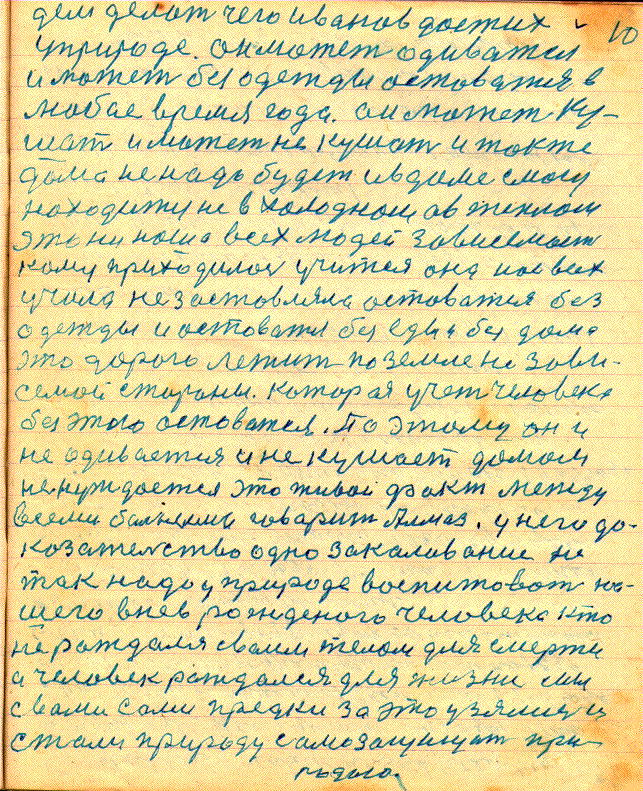 дем делат чего иванов достих 10
у природе. он может одиватся
и может без одежды оставатся в
любое время года. он может ку-
шат и может не кушат и также
дома не надо будет и в доме смогу
нахожу не в холодном а в теплом
это ни наша всех людей зависемаст
кому приходилос учится она нас всех
учила не заставляла оставатся без
одежды и оставатся без еды и без дома
это дорога лежит по земле не зави-
семой стораны. которая учет человека
без этого оставатся. Поэтому он и
не одивается и не кушает домом
не нуждается это живой факт между
всеми балнеми говарит Алмаз. у него до-
козателство одно закаливание не
так надо у природе воспитоват на-
шего внев рожденого человека кто
не раждался сваим телом для смерти
а человек раждался для жизни мы
с вами сами предки за это узялися и
стали природу самозащищат при-